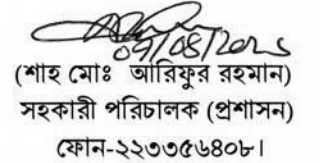 (শাহ মোঃ আরিফুর রহমান)
সহকারী পরিচালক (প্রশাসন)
ফোন-২২৩৩৫৬৪০৮।